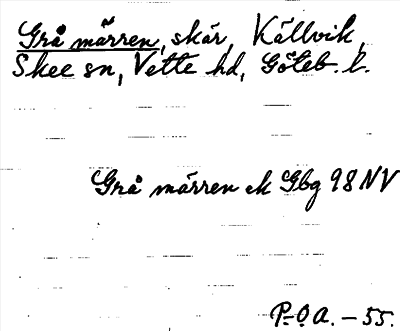 Grå märren, skär, Källvik,
Skee sn, Vette hd, Göteb. l.
Grå märren ek Gbg 98 NV
P.O.A. – 55.